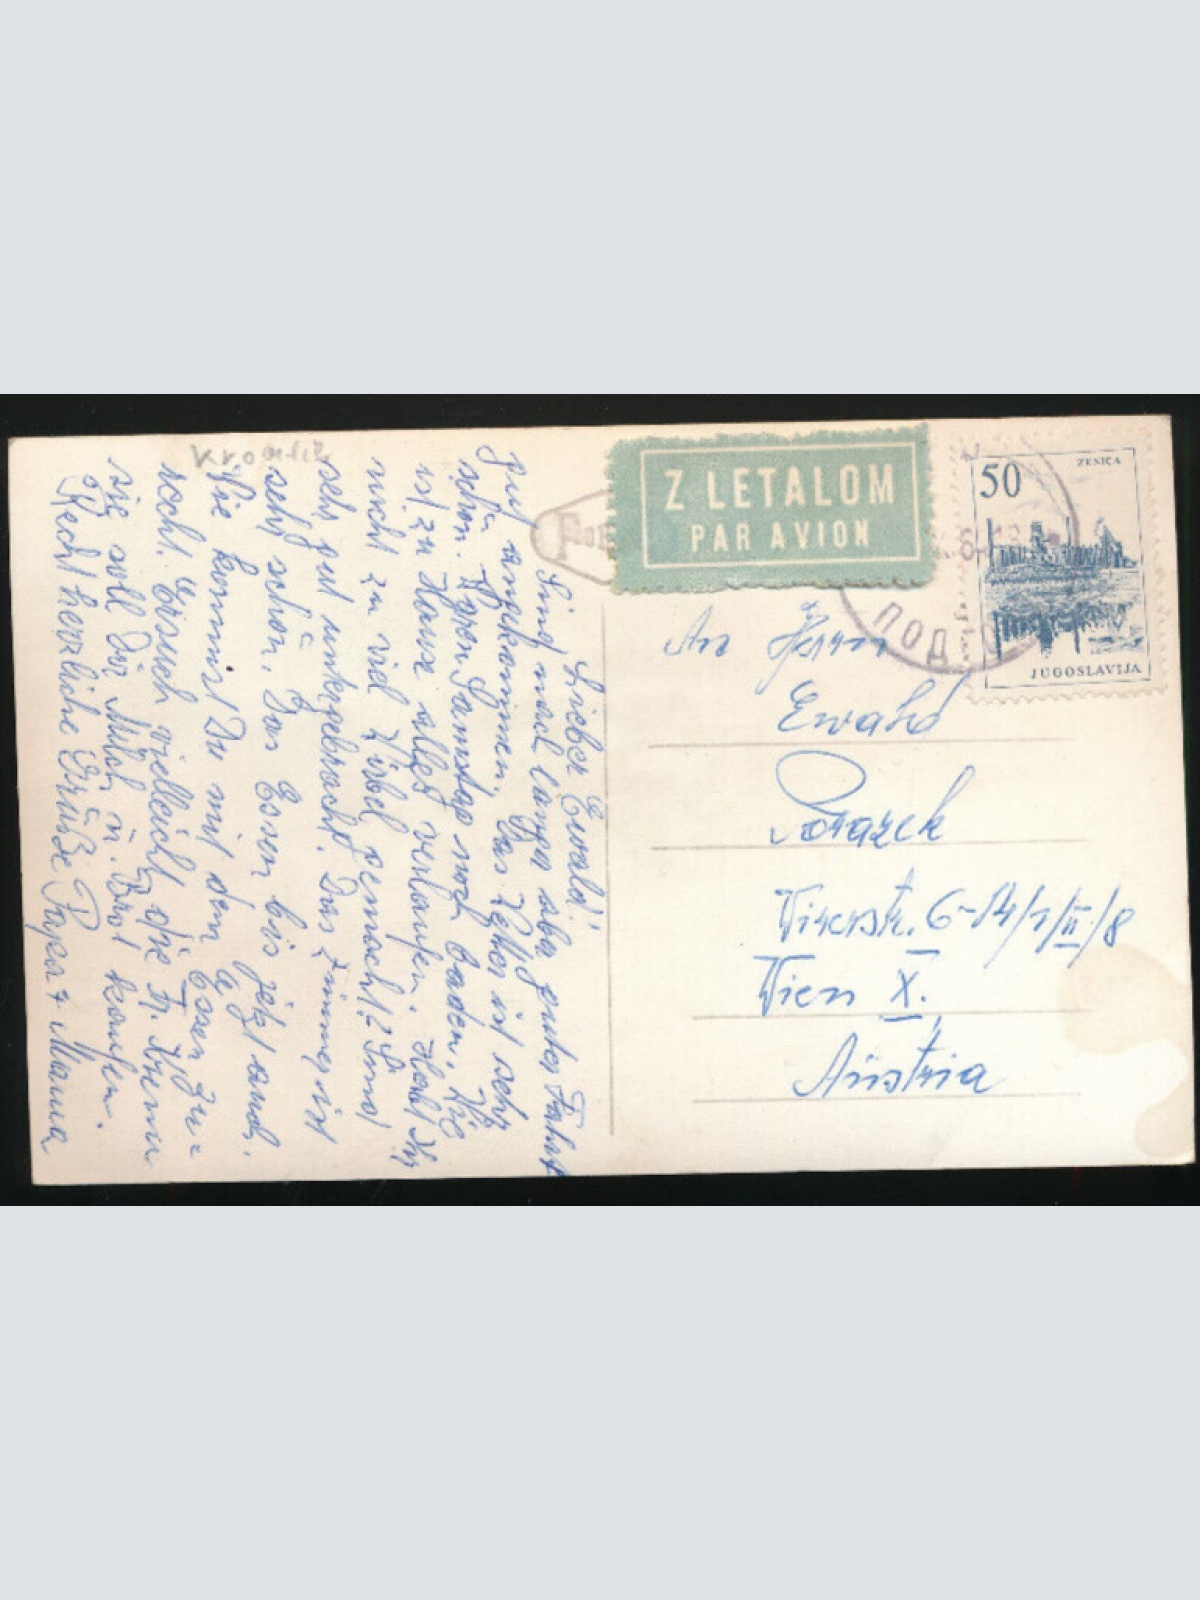 Kroatie
Lieber Ewald!
Sind nach langer aber guter Fahrt
gut angekommen. Das Wetter ist sehr
schön. Waren Samstag noch baden. Wie
ist zu Hause alles verlaufen. Habt Ihr
nicht zu viel Wirbel gemacht? Sind
sehr gut untergebracht. Das Zimmer ist
sehr schön. Das Essen bis jetzt auch.
Wie kommst Du mit dem Essen zu-
recht. Ersuch vielleicht die Fr.
sie soll Dir Milch u. Brot kaufen.
Recht herzliche Grüße Papa + Mama
Z LETALOM
PAR AVION
50
ZENICA
JUGOSLAVIJA
ПОД
An Herrn
Ewald
Porazek
6-14/1/II/8
Wien X.
Austria